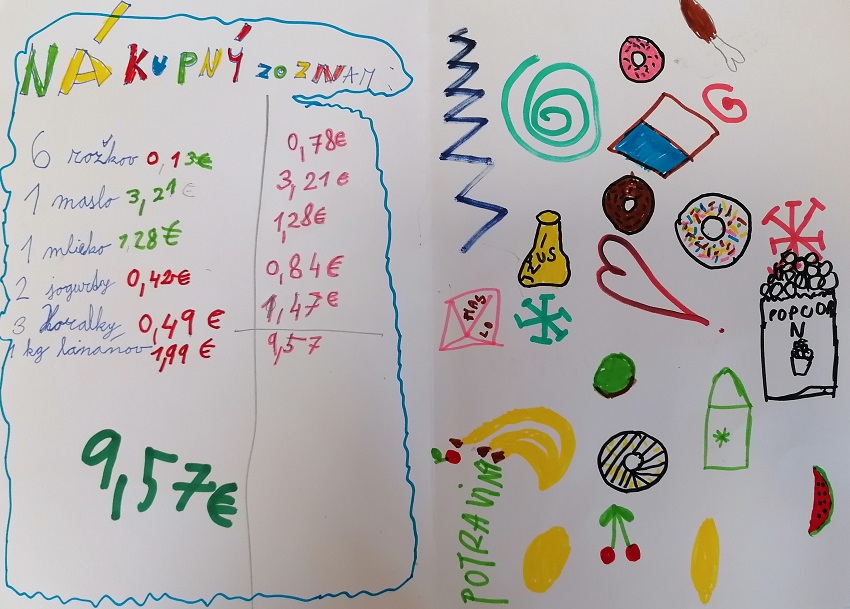 NÁKUPNÝ ZOZNAM:
6 rožkov 0,13€ 0,78€
1 maslo 3,21€ 3,21€
1 mlieko 1,28€ 1,28€
2 jogurty 0,42€ 0,84€
3 Horalky 0,49€ 1,47€
1 kg banánov 1,99€
9,57
9,57€
DŽÚS
MAS
LO
POPCOR
N
POTRAVINY